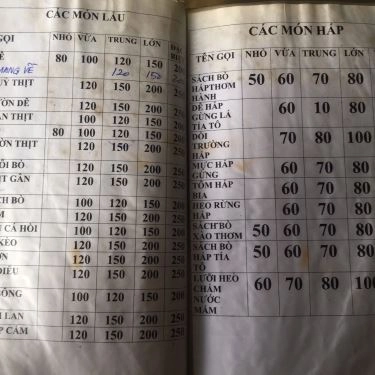 CÁC MÓN LẨU
NHỎ VỪA TRUNG LỚN
80 100 120 150 200
MANG VỀ 120 150
THỊT 120 150 200 250
DÊ 120 150 200 250
THỊT 120 150 200 250
80 100 120 150 200
THỊT 120 150 200 250
120 150 200 250
BÒ 120 150 200 250
GÂN 120 150 200 250
BÒ 100 120 150 200
120 150 200 250
CÁ HỒI 100 120 150 200
KÈO 120 150 200 250
120 150 200 250
ĐIÊU 120 150 200 250
100 120 150 200
LAN 120 150 200 250
CẦM 120 150 200 250
CÁC MÓN HẤP
TÊN GỌI NHỎ VỪA TRUNG LỚN
SÁCH BÒ HẤPTHƠM HÀNH 50 60 70 80
DÊ HẤP GỪNG LÁ TÍA TÔ 60 10 80
DỒI TRƯỜNG HẤP 70 80 100
MỰC HẤP GỪNG 60 70 80
TÔM HẤP BIA 60 70 80
HEO RỪNG HẤP 60 70 80
SÁCH BÒ XÀO THƠM 50 60 70 80
SÁCH BÒ HẤP TÍA TÔ 50 60 70 80
LƯỠI HEO CHẤM NƯỚC MẮM 60 70 80 100